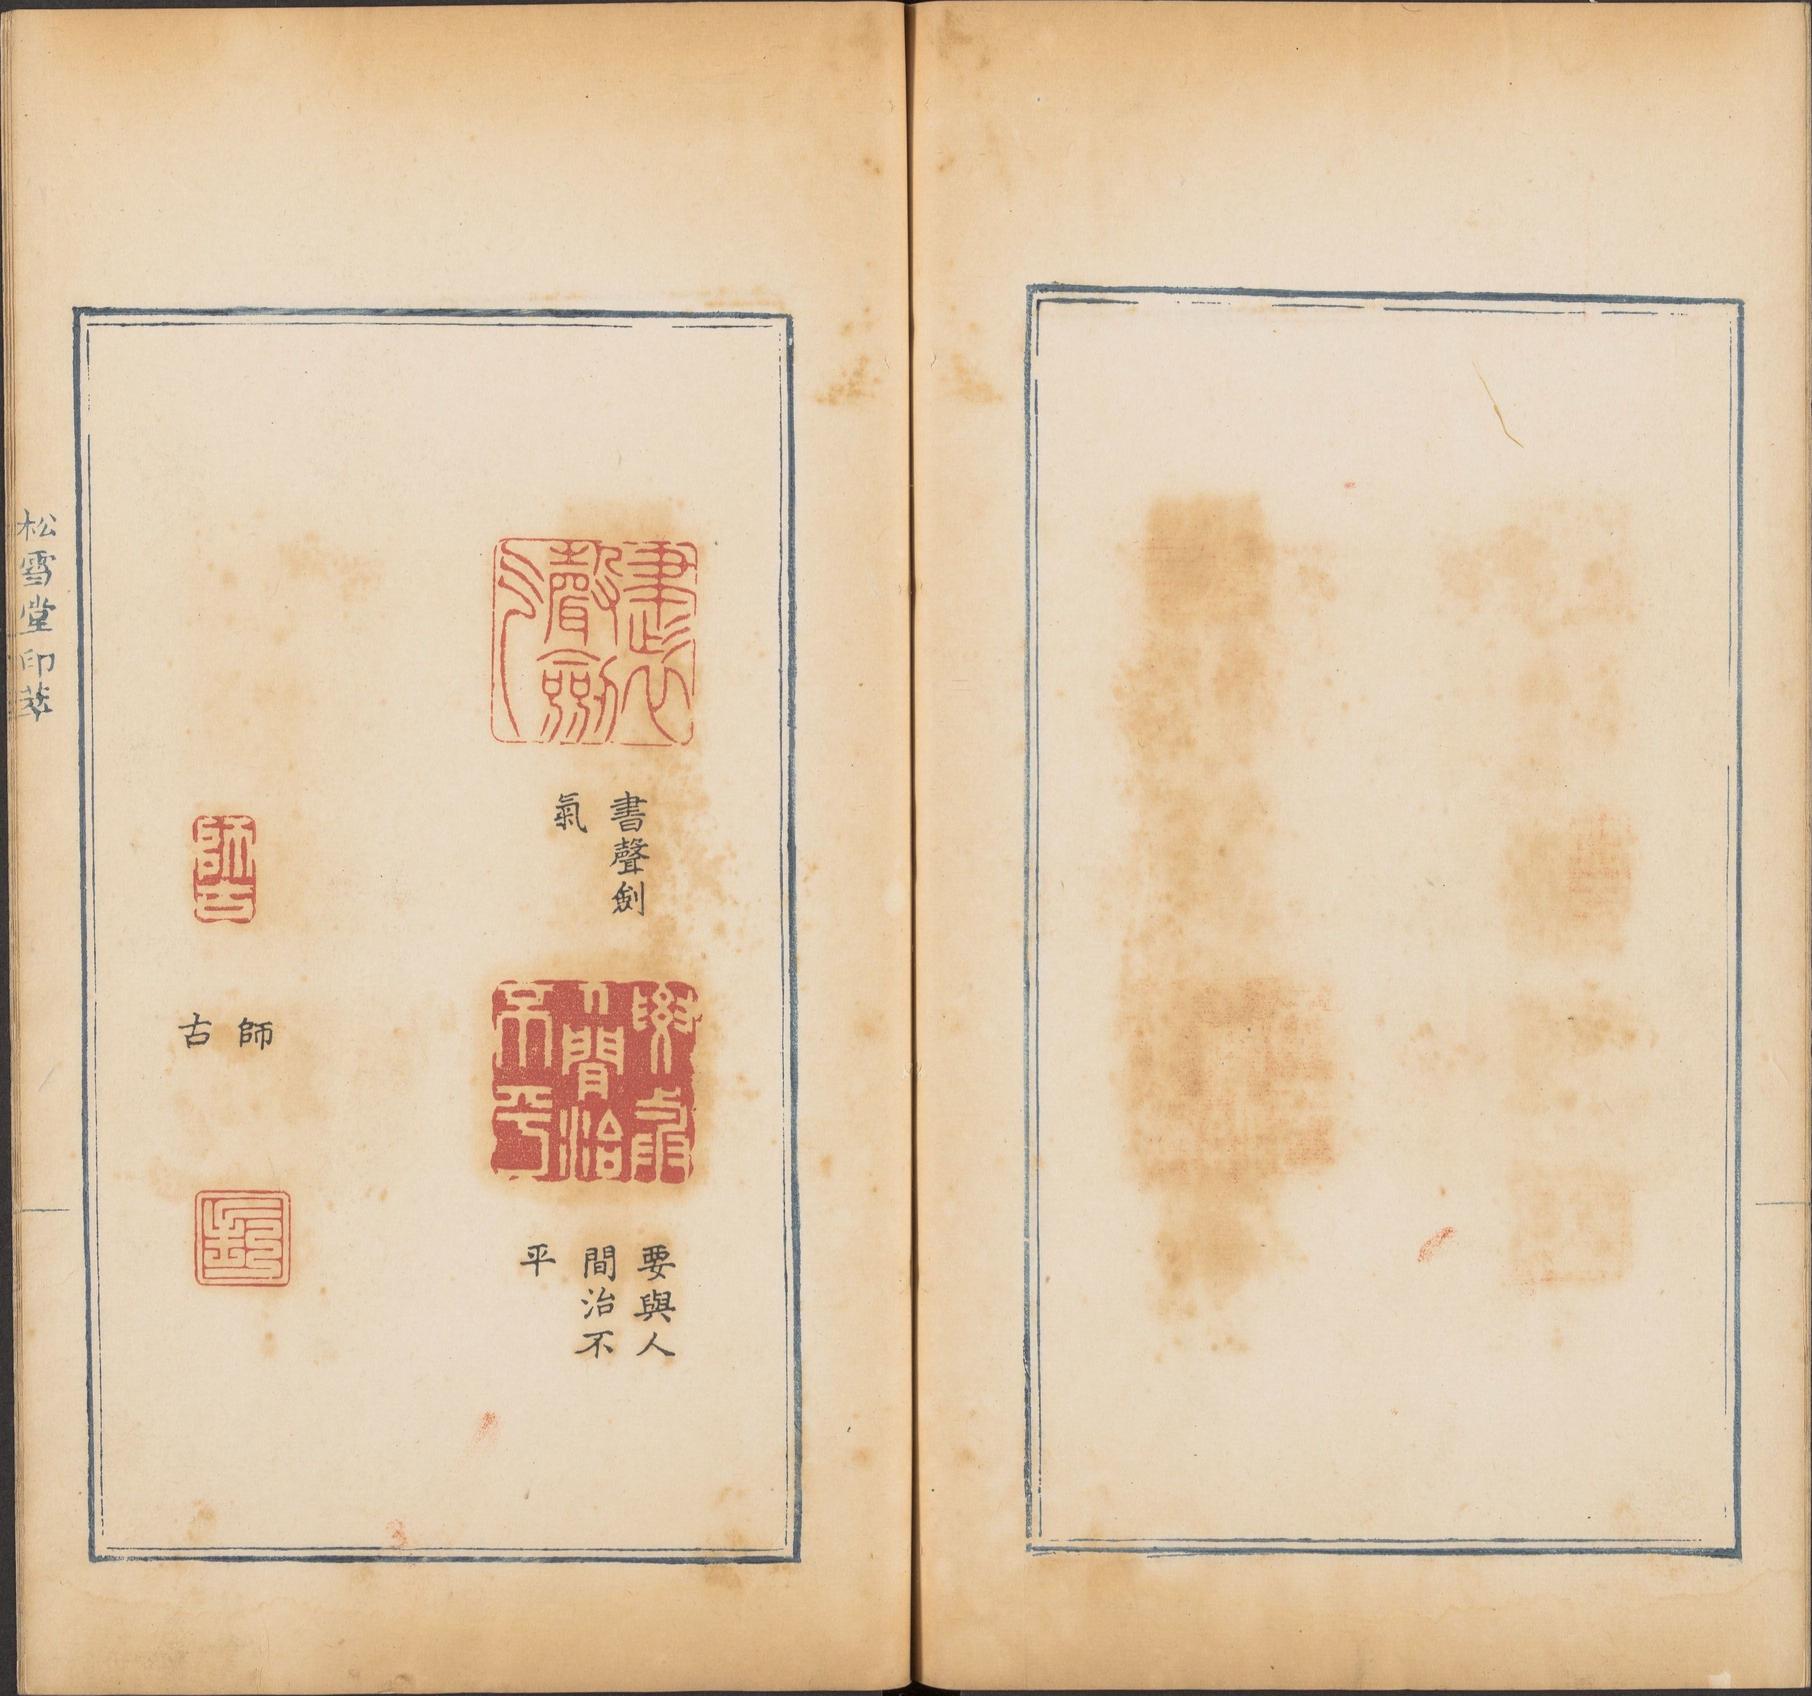 書聲劍
氣
要與人
間治不
平
師
古
松雪堂印萃